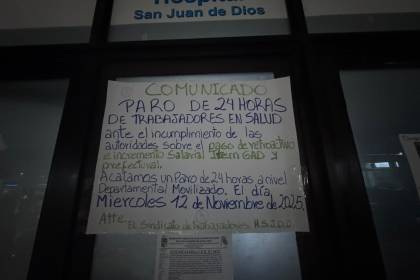 Hospital
San Juan de Dios
COMUNICADO
PARO DE 24 HORAS
DE TRABAJADORES EN SALUD
ante el incumplimiento de las
autoridades sobre el pago de retroactivo
e incremento Salarial Item GAD y
prefectural.
Acatamos un Paro de 24 horas a nivel
Departamental Movilizado. El día,
Miercoles 12 de Noviembre de 2025
Atte.
El Sindicato de Trabajadores H.S.J.D.D